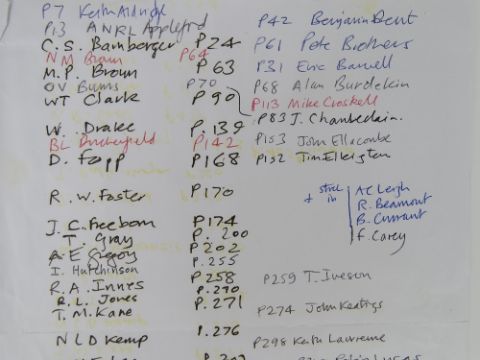 P7 Keith Aldridge
P13 A N R L Appleford
C. S. Bamberger P24
NM Brown P64
M.P. Brown P63
OV Burns P70
WT Clark P90
W. Drake P.139
BL Duckenfield P142
D. Fopp P168
R.W. Foster P170
J. C. Freeborn P174
T. Gray P. 200
A E Gregory P 202
I. Hutchinson P.255
R.A. Innes P258
R.L. Jones P.270
T. M. Kane P.271
N L D Kemp P.276
P42 Benjamin Bent
P61 Pete Brothers
P31 Eric Barwell
P68 Alan Burdekin
P113 Mike Croskell
P83 J. Chamberlain.
P153 John Ellacombe
P152 Tim Elkington
+ stick in
A C Leigh
R. Beamont
B. Currant
F. Carey
P259 T. Iveson
P274 John Keatings
P298 Keith Lawrence